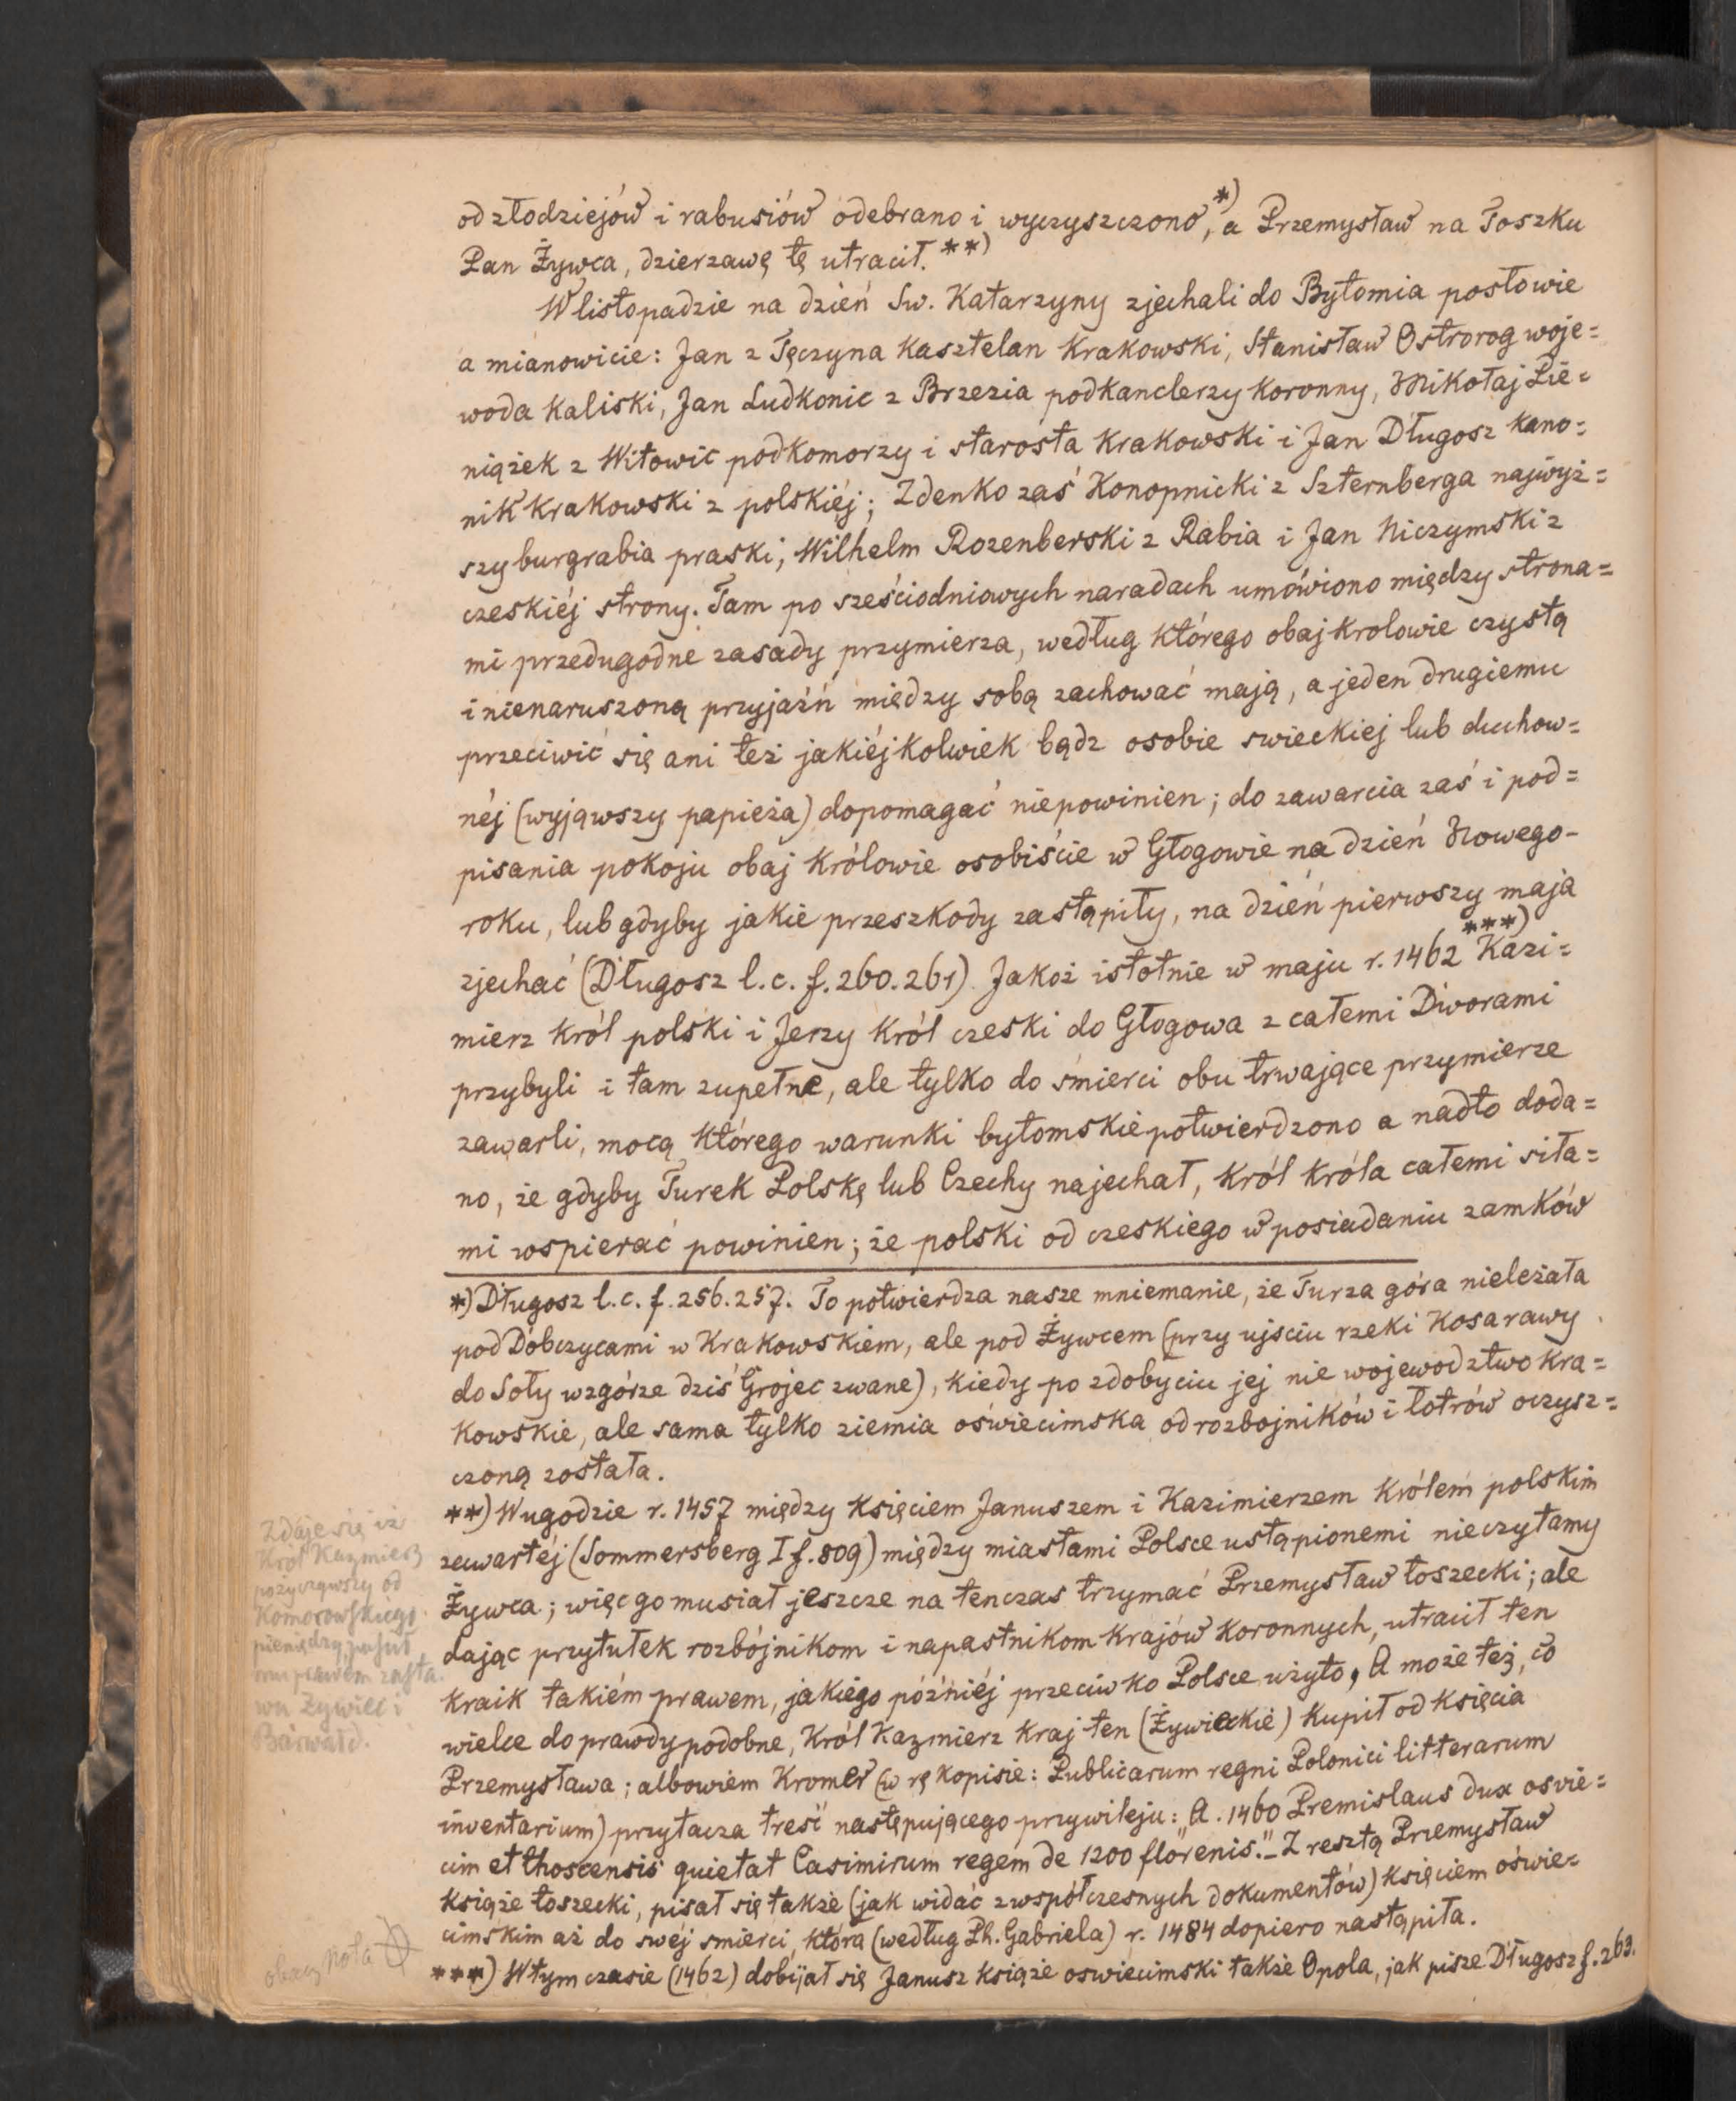 od złodziejów i rabusiów odebrano i wyczyszczono,*) a Przemysław na Toszku
Pan Żywca, dzierzawę tę utracił.**)
W listopadzie na dzień Sw. Katarzyny zjechali do Bytomia posłowie
a mianowicie: Jan z Tęczyna Kasztelan Krakowski, Stanisław Ostrorog woje=
woda Kaliski, Jan Ludkonic z Brzezia podkanclerzy Koronny, Mikołaj Pie=
niążek z Witowic podkomorzy i starosta Krakowski i Jan Długosz kano=
nik Krakowski z polskiéj; Zdenko zaś Konopnicki z Szternberga najwyż=
szy burgrabia praski, Wilhelm Rozenberski z Rabia i Jan Niczymski z
czeskiéj strony. Tam po sześciodniowych naradach umówiono między strona=
mi przedugodne zasady przymierza, według którego obaj krolowie czystą
i nienaruszoną przyjaźń między sobą zachować mają, a jeden drugiemu
przeciwić się ani też jakiéjkolwiek bądz osobie swieckiej lub duchow=
néj (wyjąwszy papieża) dopomagać niepowinien; do zawarcia zaś i pod=
pisania pokoju obaj Królowie osobiście w Głogowie na dzień Nowego-
roku, lub gdyby jakie przeszkody zastąpiły, na dzień pierwszy maja
zjechać (Długosz l.c. f. 260. 261). Jakoż istotnie w maju r. 1462 ***) Kazi=
mierz Król polski i Jerzy Król czeski do Głogowa z całemi Dworami
przybyli i tam zupełne, ale tylko do śmierci obu trwające przymierze
zawarli, mocą którego warunki bytomskie potwierdzono a nadto doda=
no, że gdyby Turek Polskę lub Czechy najechał, Król Króla całemi siła=
mi wspierać powinien; że polski od czeskiego w posiadaniu zamków
*) Długosz l.c. f. 256. 257. To potwierdza nasze mniemanie, że Turza góra nieleżała
pod Dobczycami w Krakowskiem, ale pod Żywcem (przy ujsciu rzeki Kosarawy
do Soły wzgórze dziś Grojec zwane), Kiedy po zdobyciu jej nie wojewodztwo Kra=
Kowskie, ale sama tylko ziemia oświecimska od rozbojników i łotrów oczysz=
czoną została.
**) W ugodzie r. 1457 między Księciem Januszem i Kazimierzem Królem polskim
zawartéj (Sommersberg I f. 809) między miastami Polsce ustąpionemi nieczytamy
Żywca; więc go musiał jeszcze na tenczas trzymać Przemysław toszecki; ale
dając przytułek rozbójnikom i napastnikom Krajów Koronnych, utracił ten
Kraik takiém prawem, jakiego późniéj przeciwko Polsce użyto. A może też, co
wielce do prawdy podobne, Król Kazmierz Kraj ten (Żywieckie) Kupił od Księcia
Przemysława; albowiem Kromer (w rękopisie: Publicarum regni Polonici litterarum
inventarium) przytacza treść następującego przywileju: „A. 1460 Premislaus dux osvie=
cim et thoscensis quietat Casimirum regem de 1200 florenis." – Z resztą Przemysław
Książe toszecki, pisał się także (jak widać z współczesnych dokumentów) Księciem oświe=
cimskim aż do swéj smierci, która (według Ph. Gabriela) r. 1484 dopiero nastąpiła.
***) W tym czasie (1462) dobijał się Janusz Książe oswiecimski także Opola, jak pisze Długosz f. 263.
Zdaje się iż
Król Kazmierz
pożyczywszy od
Komorowskiego
pieniędzy puścił
mu prawem zasta
wu Żywiec i
Barwałd.
obacz nota